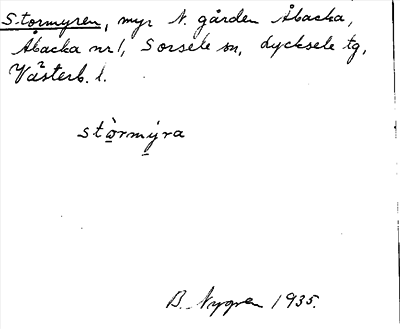 Stormyren, myr N. gården Åbacka,
Åbacka nr 1, Sorsele sn, Lycksele tg,
Västerb. l.
stòrmýra
B. Nygren 1935.